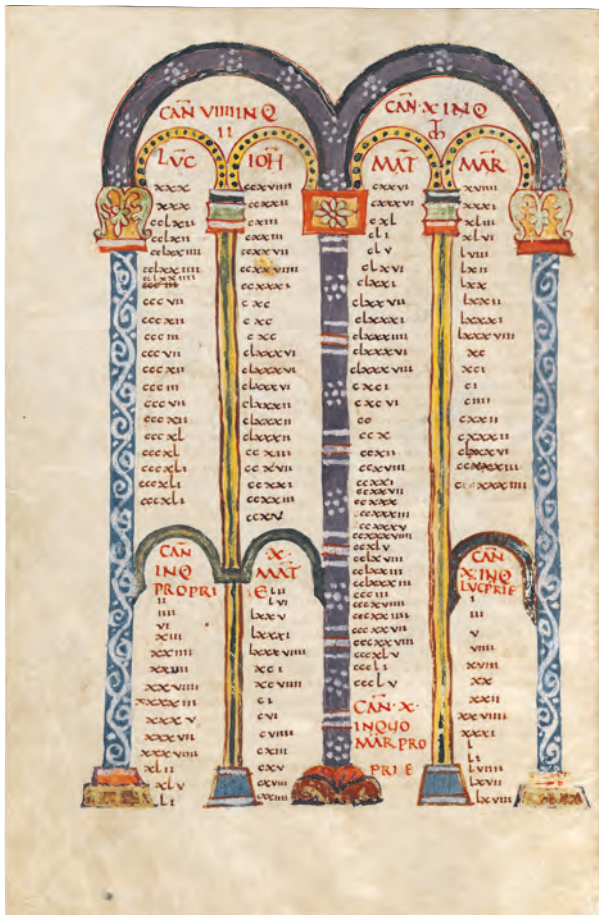 CAN VIIII IN Q
II
LUC
xxx
xxx
cclxii
cclxii
cclxxiiii
cclxxiiii
cccvii
cccxii
ccciii
cccvii
cccxii
ccciii
cccvii
cccxii
cccxl
cccxl
cccxli
cccxli
cccxli
IOH
ccxviiii
ccxxii
cxiii
cxxiii
ccxxvii
ccxxviiii
ccxxxi
cxc
cxc
cxc
clxxxvi
clxxxvi
clxxxvi
clxxxii
clxxxii
clxxxii
ccxvii
ccxxi
ccxxiii
CAN · X IN Q
MAT
cxxvi
cxxxvi
cxl
cli
clv
clxvi
clxxi
clxxvii
clxxxi
clxxxiiii
clxxxvi
clxxxviii
cxci
cxcvi
cc
ccx
ccxii
ccxviii
ccxxi
ccxxvii
ccxxx
ccxxxiii
ccxxxv
ccxlv
cclxviii
cclxxiii
cclxxxiii
ccciii
cccxviiii
cccxxiiii
cccxxvii
cccxxviiii
cccxlv
cccli
ccclv
MAR
xviiii
xxxi
xliii
xlvi
lviii
lxii
lxx
lxxii
lxxxi
lxxxviii
xc
xci
ci
ciiii
cxxii
cxxxii
clxxxvi
CAN
IN Q
PROPRI
ii
iiii
vi
xiii
xxiiii
xxviii
xxxiiii
xxxv
xxxvii
xxxviiii
xlii
xlv
li
· X ·
MAT
E lii
lvi
lxxv
lxxxi
lxxxviiii
xci
xcviiii
ci
cvi
cviiii
cxiii
cxv
cxviii
CAN · X ·
IN QUO
MAR PRO
PRIE
CAN
X IN Q
LUC PRIE
i
iii
v
viiii
xviii
xx
xxii
xxviiii
xxxi
l
li
lxvii
lxviii